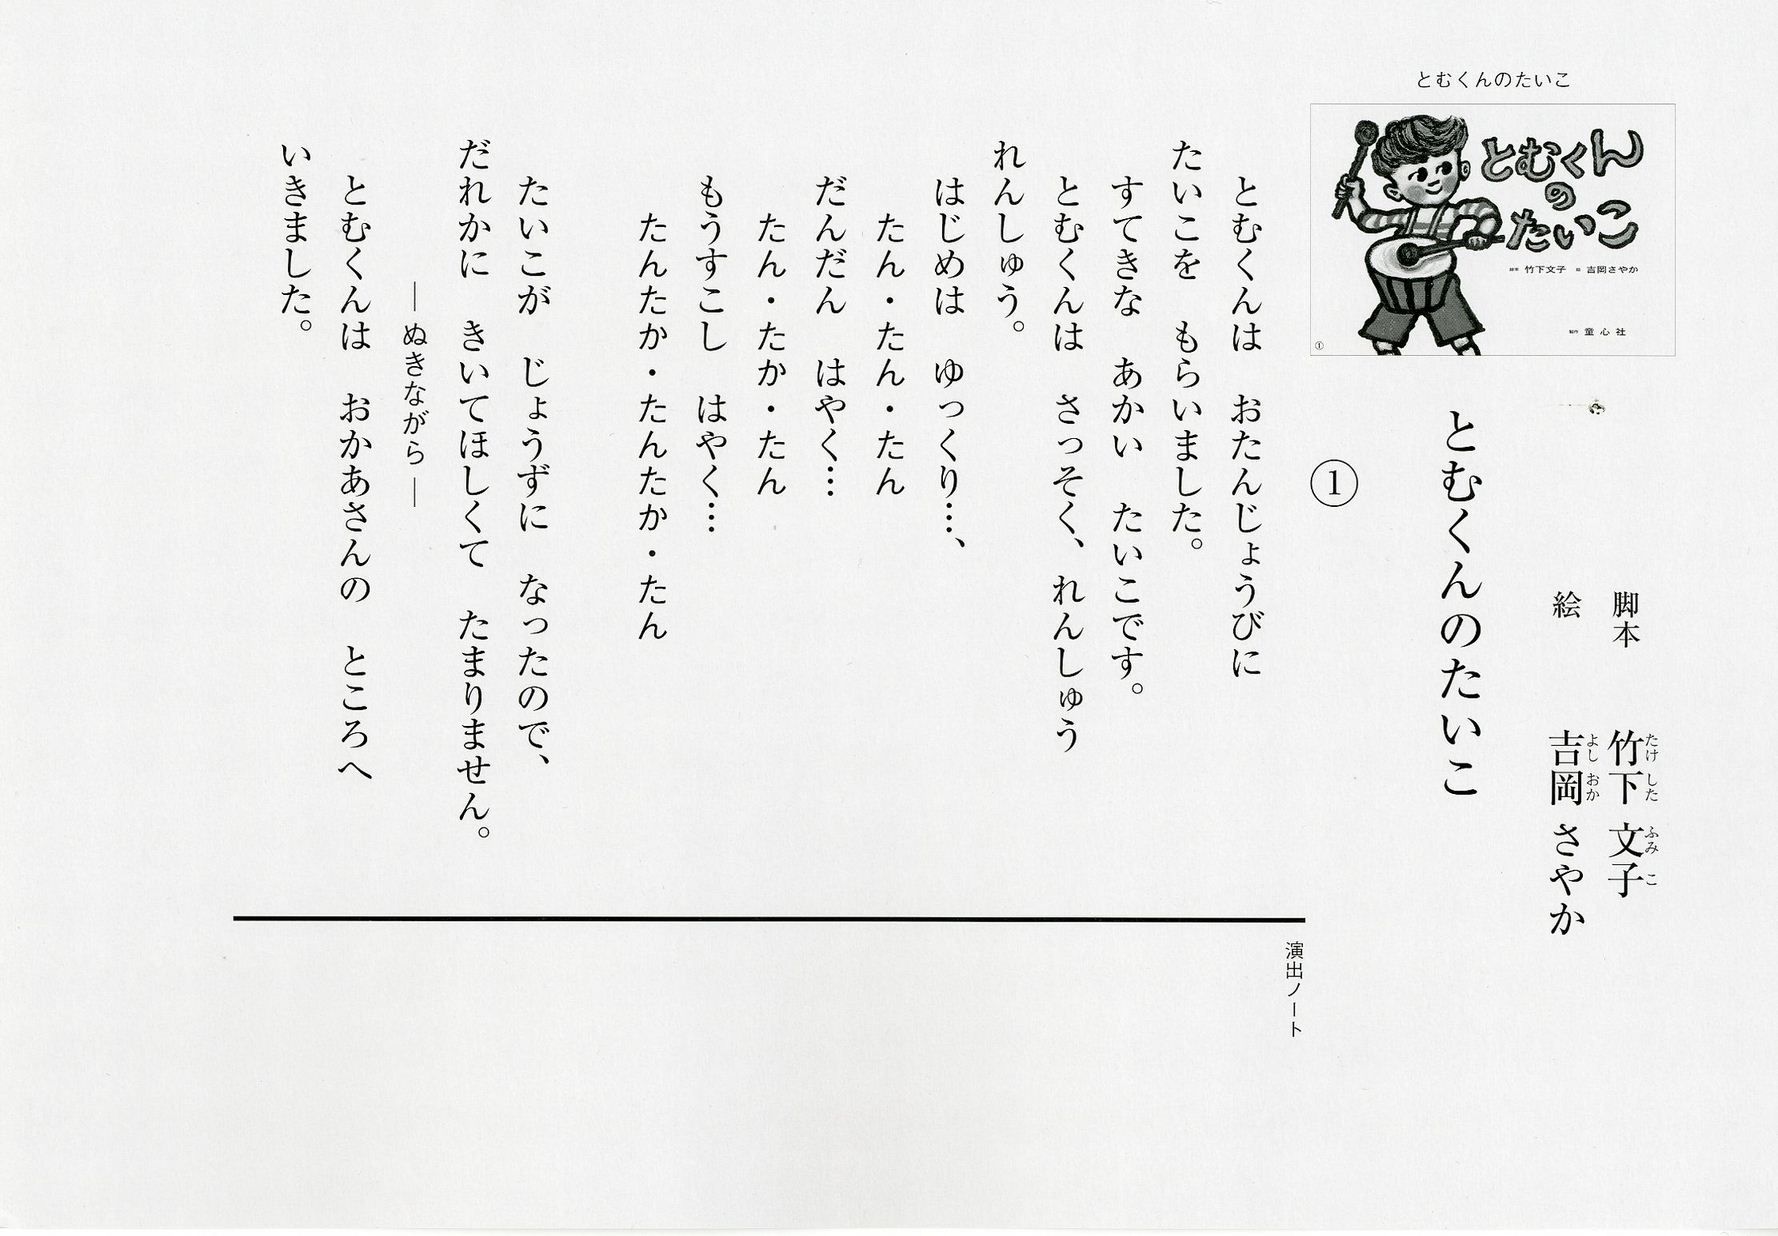 とむくんのたいこ
とむくん
の
たいこ
脚本 竹下文子 絵 吉岡さやか
制作 童心社
①
脚本 竹下 文子
たけ した ふみ こ
絵 吉岡 さやか
よし おか
とむくんのたいこ
①
とむくんは おたんじょうびに
たいこを もらいました。
すてきな あかい たいこです。
とむくんは さっそく、れんしゅう
れんしゅう。
はじめは ゆっくり…、
たん・たん・たん
だんだん はやく…
たん・たか・たん
もうすこし はやく…
たんたか・たんたか・たん
たいこが じょうずに なったので、
だれかに きいてほしくて たまりません。
―ぬきながら―
とむくんは おかあさんの ところへ
いきました。
演出ノート